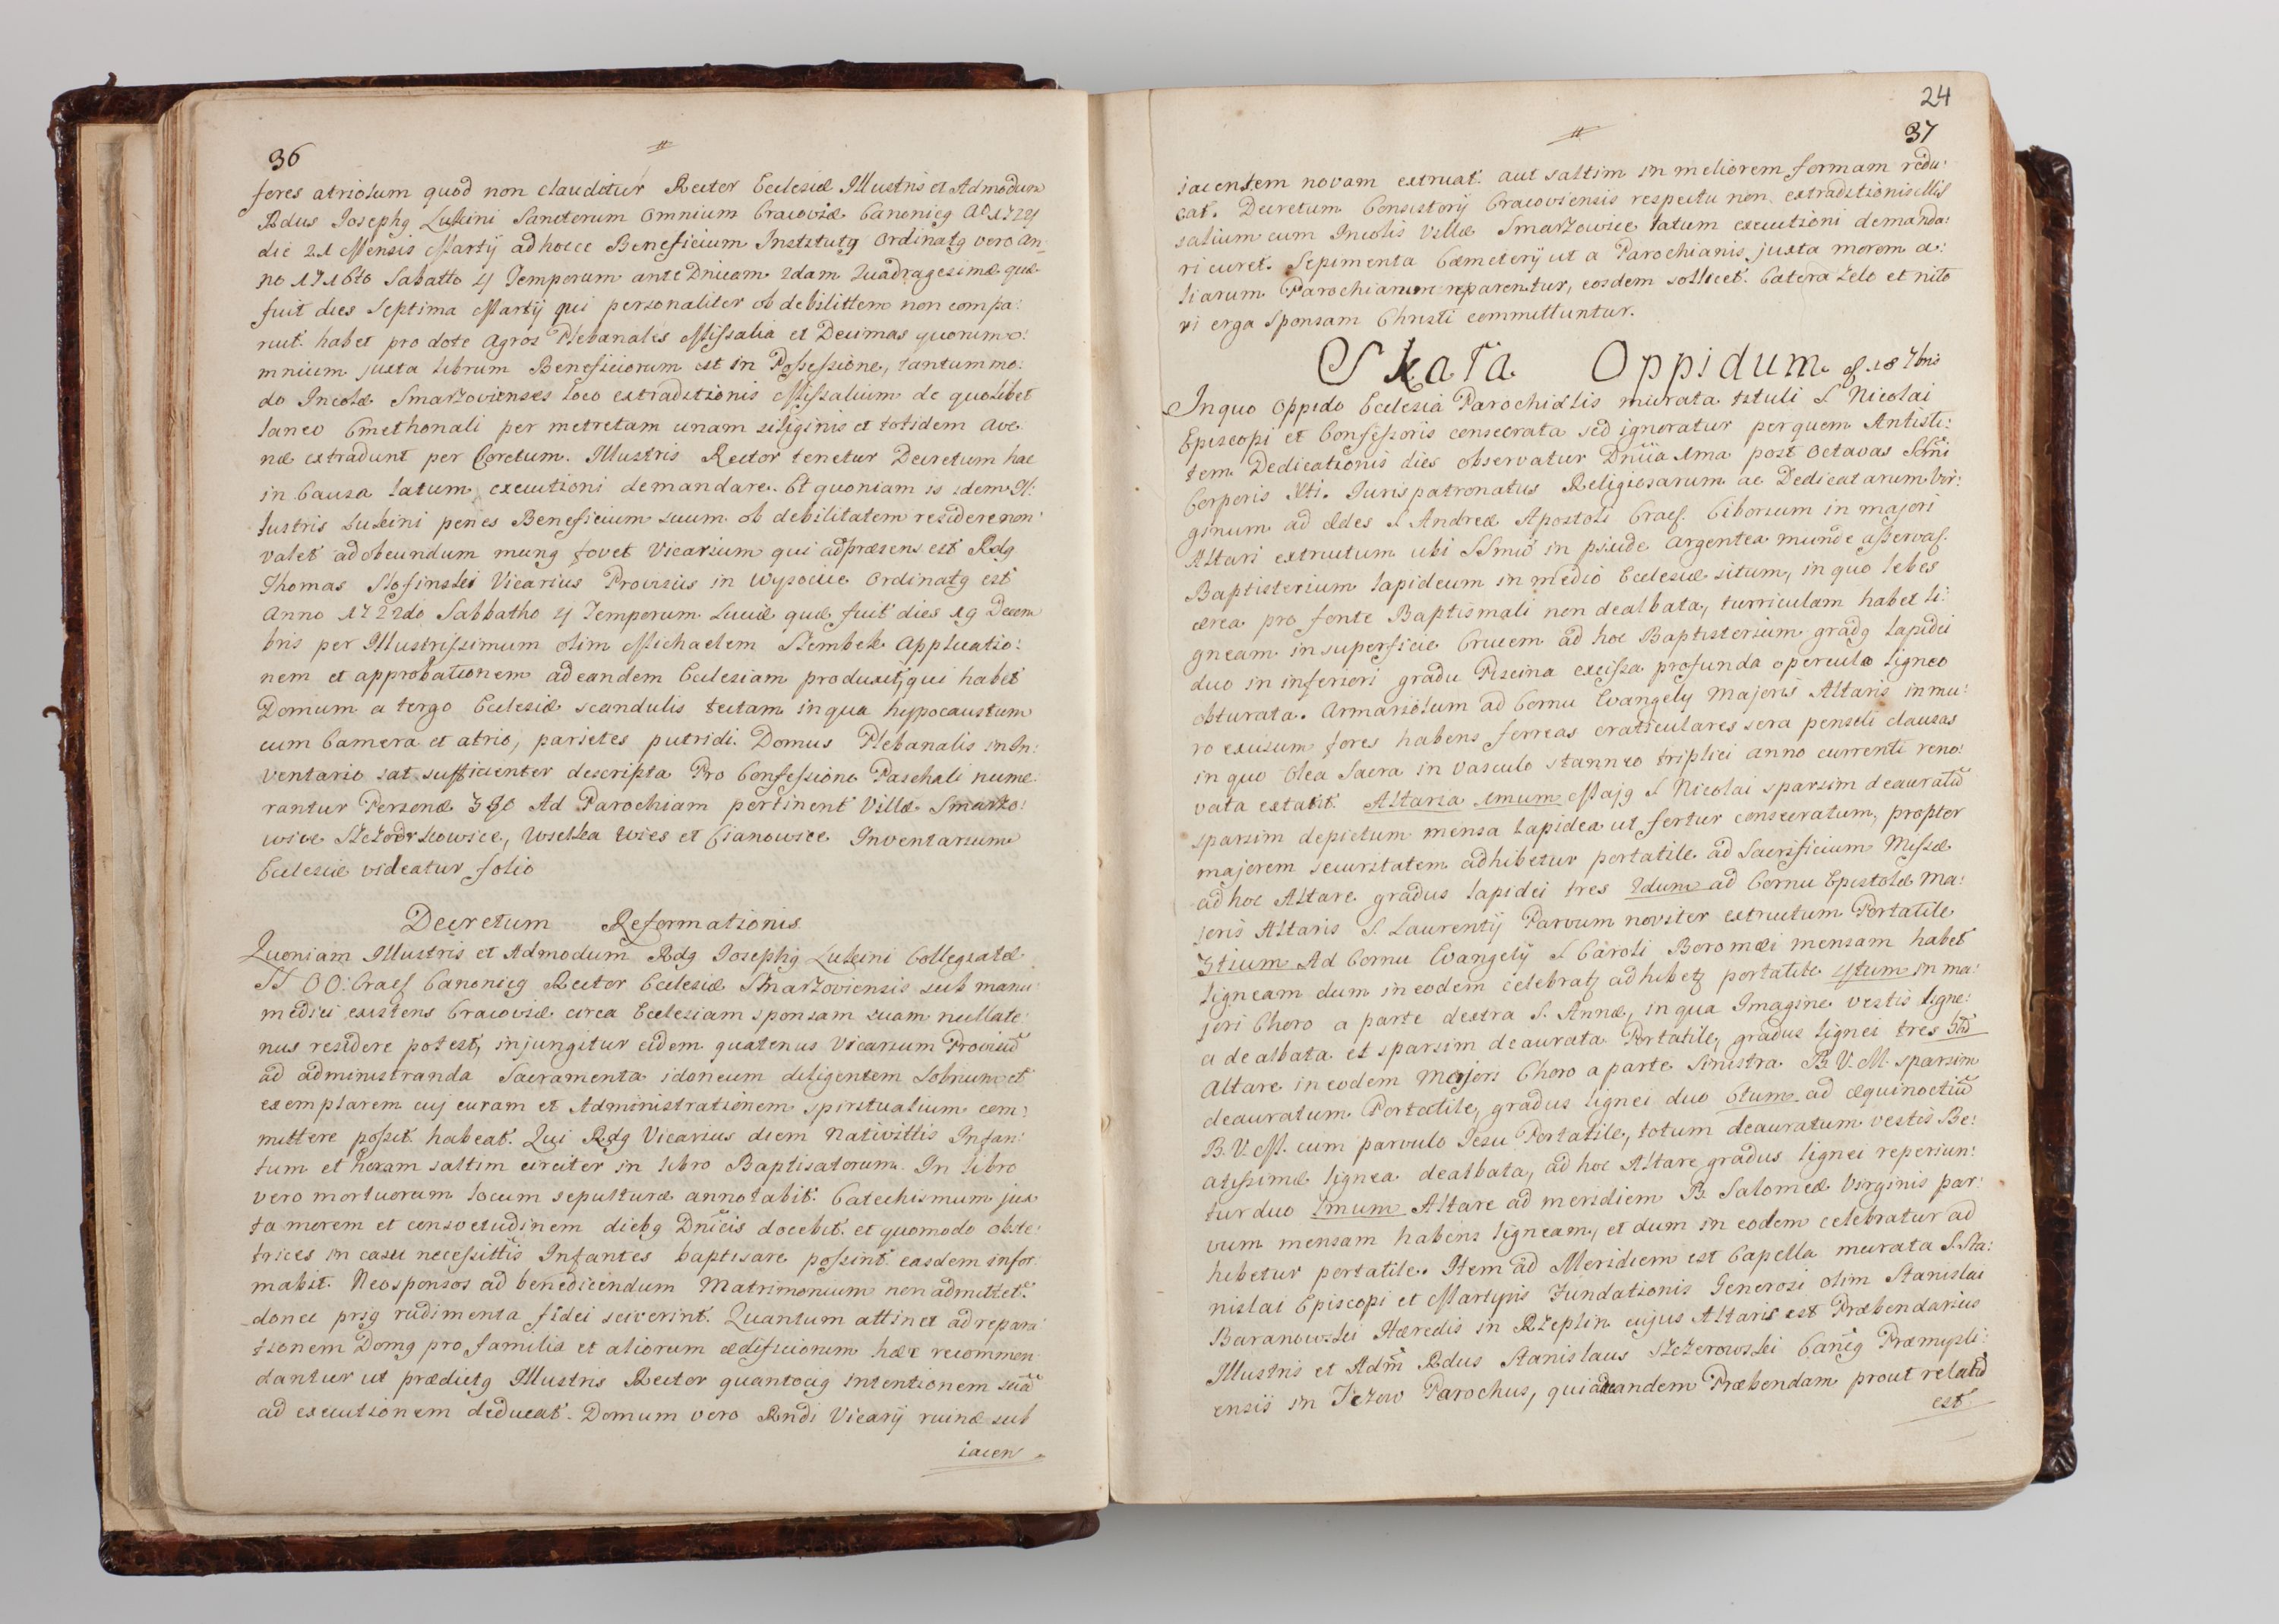 36
fores atriolum quod non clauditur Rector Ecclesiæ Illustris et Admodum
Rdus Josephg Lukini Sanctorum Omnium Cracoviæ Canonicg Ao 1724
die 21 Mensis Martij ad hocce Beneficium Institutg Ordinatg vero An-
no 1716to Sabatto 4 Temporum ante Dnicam 2dam Quadragesimæ quæ
fuit dies Septima Martij qui personaliter ob debilittem non compa:
ruit. habet pro dote Agros Plebanales Missalia et Decimas quorum o:
mnium juxta librum Beneficiorum est in Possessione, tantummo:
do Incolæ Smarzovienses loco extraditionis Missalium de quolibet
laneo Cmethonali per metretam unam siliginis et totidem Ave:
næ extradunt per Coretum. Illustris Rector tenetur Decretum hac
in Causa latum executioni demandare. Et quoniam is idem Il:
lustris Lukini penes Beneficium suum ob debilitatem residere non
valet ad obeundum mung fovet Vicarium qui ad præsens est Rdg
Thomas Vicarius Provisius in Wysocice Ordinatg est
Anno 1722do Sabbatho 4 Temporum Luciæ quæ fuit dies 19 Decem
bris per Illustrissimum olim Michaelem Szembek Applicatio:
nem et approbationem ad eandem Ecclesiam produxit, qui habet
Domum a tergo Ecclesiæ scandulis tectam in qua hypocaustum
cum Camera et atrio, parietes putridi. Domus Plebanalis in In:
ventario sat sufficienter descripta Pro Confessione Paschali nume:
rantur Personæ Ad Parochiam pertinent Villæ Smarzo:
wice Szczodrkowice, Wielka Wies et Cianowice Inventarium
Ecclesiæ videatur folio
Decretum Reformationis
Quoniam Illustris et Admodum Rdg Josephg Lukini Collegiatæ
SS OO: Crac Canonicg Rector Ecclesiæ Smarzoviensis sub manu
medici existens Cracoviæ circa Ecclesiam sponsam suam nullate:
nus residere potest, injungitur eidem quatenus Vicarium Provisiũ
ad administranda Sacramenta idoneum diligentem Sobrium et
exemplarem cuj curam et Administrationem spiritualium com:
mittere possit habeat. Qui Rdg Vicarius diem Nativittis Infan:
tum et horam saltim circiter in libro Baptisatorum In libro
vero mortuorum locum sepulturæ annotabit. Catechismum jux
ta morem et consvetudinem diebg Dnicis docebit. et quomodo obste:
trices in casu necessittis Infantes baptisare possint easdem infor
mabit. Neosponsos ad benedicendum Matrimonium non admittet.
donec prig rudimenta fidei sciverint. Quantum attinet ad repara:
tionem Domg pro familia et aliorum ædificiorum hæc recommen
dantur ut prædictg Illustris Rector quantocig intentionem suã
ad executionem deducat. Domum vero Rndi Vicarij ruinæ sub
iacen
24
37
iacentem novam extruat. aut saltim in meliorem formam redu:
cat. Decretum Consistorij Cracoviensis respectu non extraditionis Mis
salium cum Incolis Villæ Smarzowice latum executioni demanda:
ri curet. Sepimenta Cæmeterij ut a Parochianis juxta morem a:
liarum Parochiarum reparentur, eosdem sollicet. Cætera zelo et nito
ri erga Sponsam Christi committuntur.
Skała Oppidum 18 7bris
In quo Oppido Ecclesia Parochialis murata tituli S Nicolai
Episcopi et Confessoris consecrata sed ignoratur per quem Antisti:
tem Dedicationis dies observatur Dniia 1ma post Octavas Scmi
Corporis Xti. Jurispatronatus Religiosarum ac Dedicatarum Vir:
ginum ad ædes S Andreæ Apostoli Crac. Ciborium in majori
Altari extructum ubi SSmũ in pixide Argentea munde asservat.
Baptisterium lapideum in medio Ecclesiæ situm, in quo lebes
ærea pro fonte Baptismali non dealbata, turriculam habet li:
gneam in superficie Crucem ad hoc Baptisterium gradg lapidei
duo in inferiori gradu Piscina excissa profunda operculo ligneo
obturata. Armariolum ad Cornu Evangelij Majoris Altaris in mu:
ro excisum fores habens ferreas craticulares sera pensili clausas
in quo Olea Sacra in Vasculo stanneo triplici anno currenti reno:
vata extant. Altaria 1mum Majg S Nicolai sparsim deauratũ
sparsim depictum mensa lapidea ut fertur consecratum, propter
majorem securitatem adhibetur portatile ad Sacrificium Missæ
ad hoc Altare gradus lapidei tres 2dum ad Cornu Epistolæ Ma:
joris Altaris S. Laurentij Parvum noviter extructum Portatile
3tium Ad Cornu Evangelij S Caroli Boromæi mensam habet
ligneam dum in eodem celebratg adhibetg portatile 4tum in ma:
jori Choro a parte dextra S. Annæ, in qua Imagine vestis ligne:
a dealbata et sparsim deaurata Portatile, gradus lignei tres 5tũ
Altare in eodem Majori Choro a parte Sinistra B. V. M. sparsim
deauratum Portatile, gradus lignei duo 6tum ad æquinoctiũ
B. V. M. cum parvulo Jesu Portatile, totum deauratum vestis Be:
atissimæ lignea dealbata, ad hoc Altare gradus lignei reperiun:
tur duo 7mum Altare ad meridiem B Salomeæ Virginis par:
vum mensam habens ligneam, et dum in eodem celebratur ad
hibetur portatile. Item ad Meridiem est Capella murata S. Sta:
nislai Episcopi et Martyris Fundationis Generosi olim Stanislai
Baranowski Hæredis in Rzeplin cujus Altaris est Præbendarius
Illustris et Adm̃ Rdus Stanislaus Szczerowski Cañcg Præmysli:
ensis in Jezow Parochus, qui ad eandem Præbendam prout relatũ
est